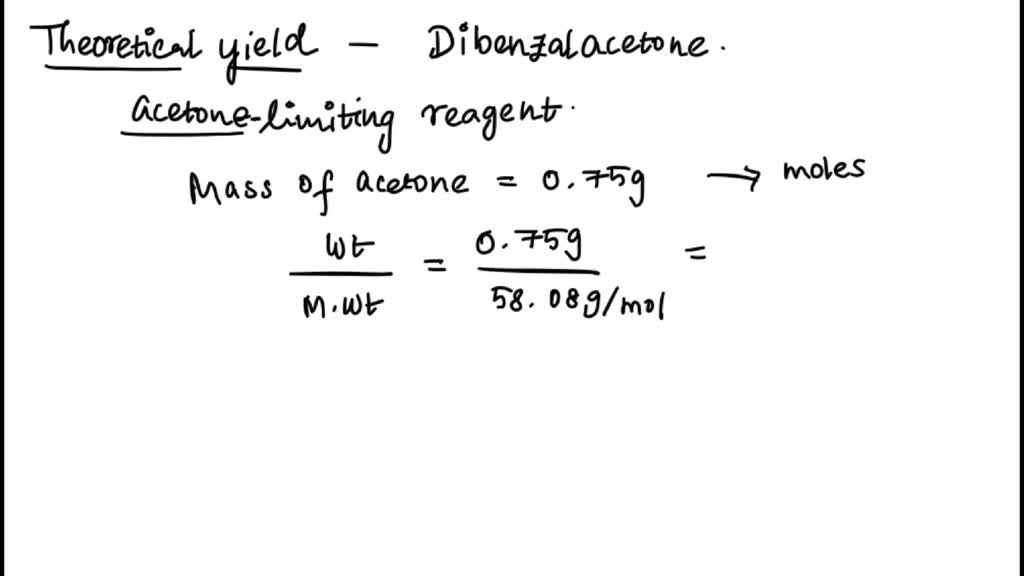 Theoretical yield – Dibenzalacetone.
acetone-limiting reagent.
Mass of acetone = 0.75g → moles
Wt / M.Wt = 0.75g / 58.08g/mol =